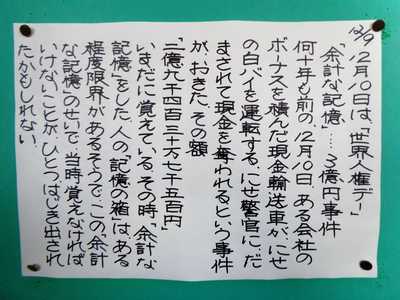 12/9
12月10日は、「世界人権デー」
「余計な記憶」…3億円事件
何十年も前の12月10日、ある会社の
ボーナスを積んだ現金輸送車が、にせ
の白バイを運転する、にせ警官に、だ
まされて現金を奪われるという事件
が、おきた。その額
「二億九千四百三十万七千五百円」
いまだに覚えている。その時、「余計な
記憶」をした。人の「記憶の箱」は、ある
程度限界があるそうで、この「余計
な記憶」のせいで、当時、覚えなければ
いけないことが、ひとつはじき出され
たかもしれない。